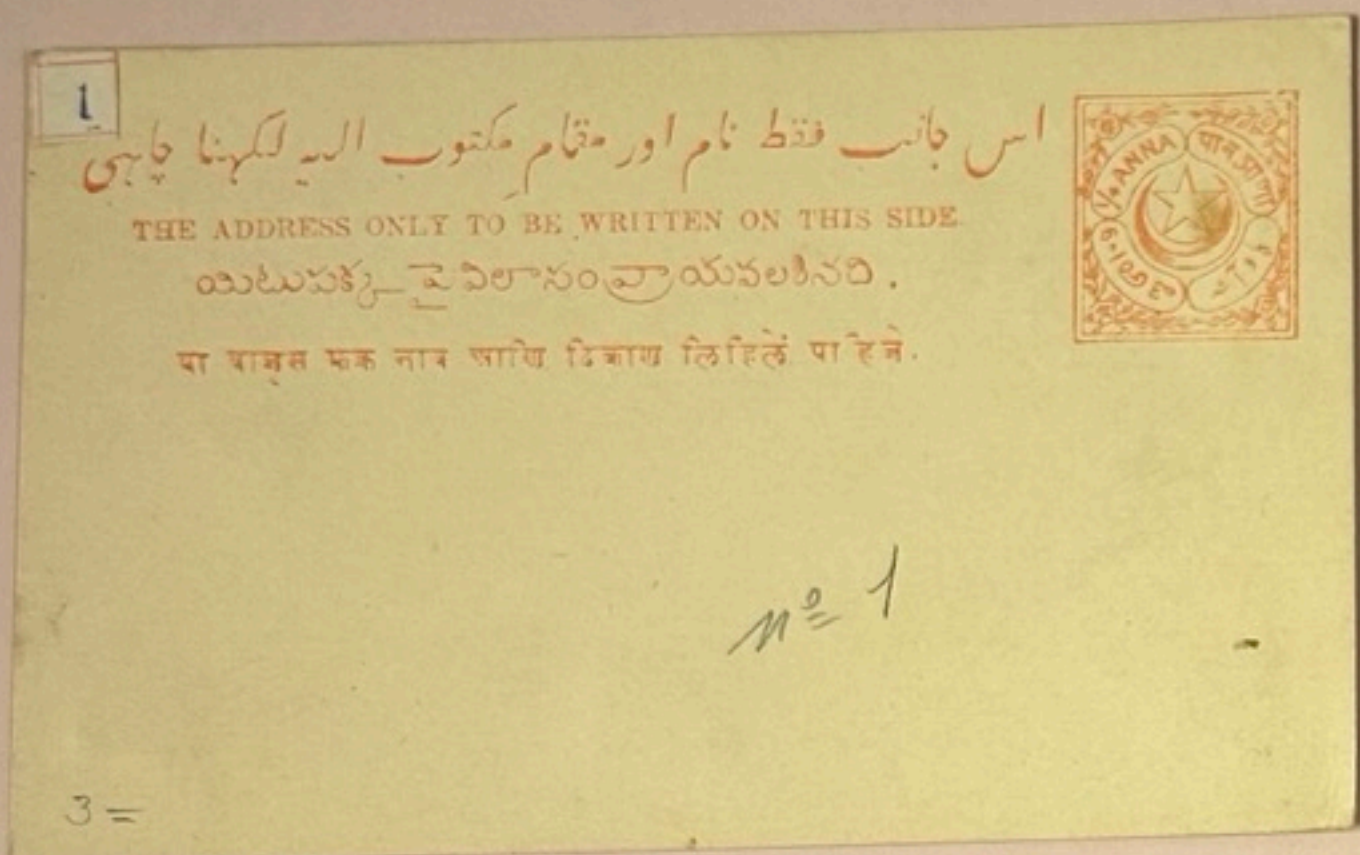 1
اس جانب فقط نام اور مقام مکتوب الیہ لکھنا چاہی
THE ADDRESS ONLY TO BE WRITTEN ON THIS SIDE.
యిటుపక్క పై విలాసం వ్రాయవలశినది.
या बाजुस फक नाव आणि ठिकाण लिहिलें पाहिजे.
¼ ANNA
पाव आणा
nº 1
3 =